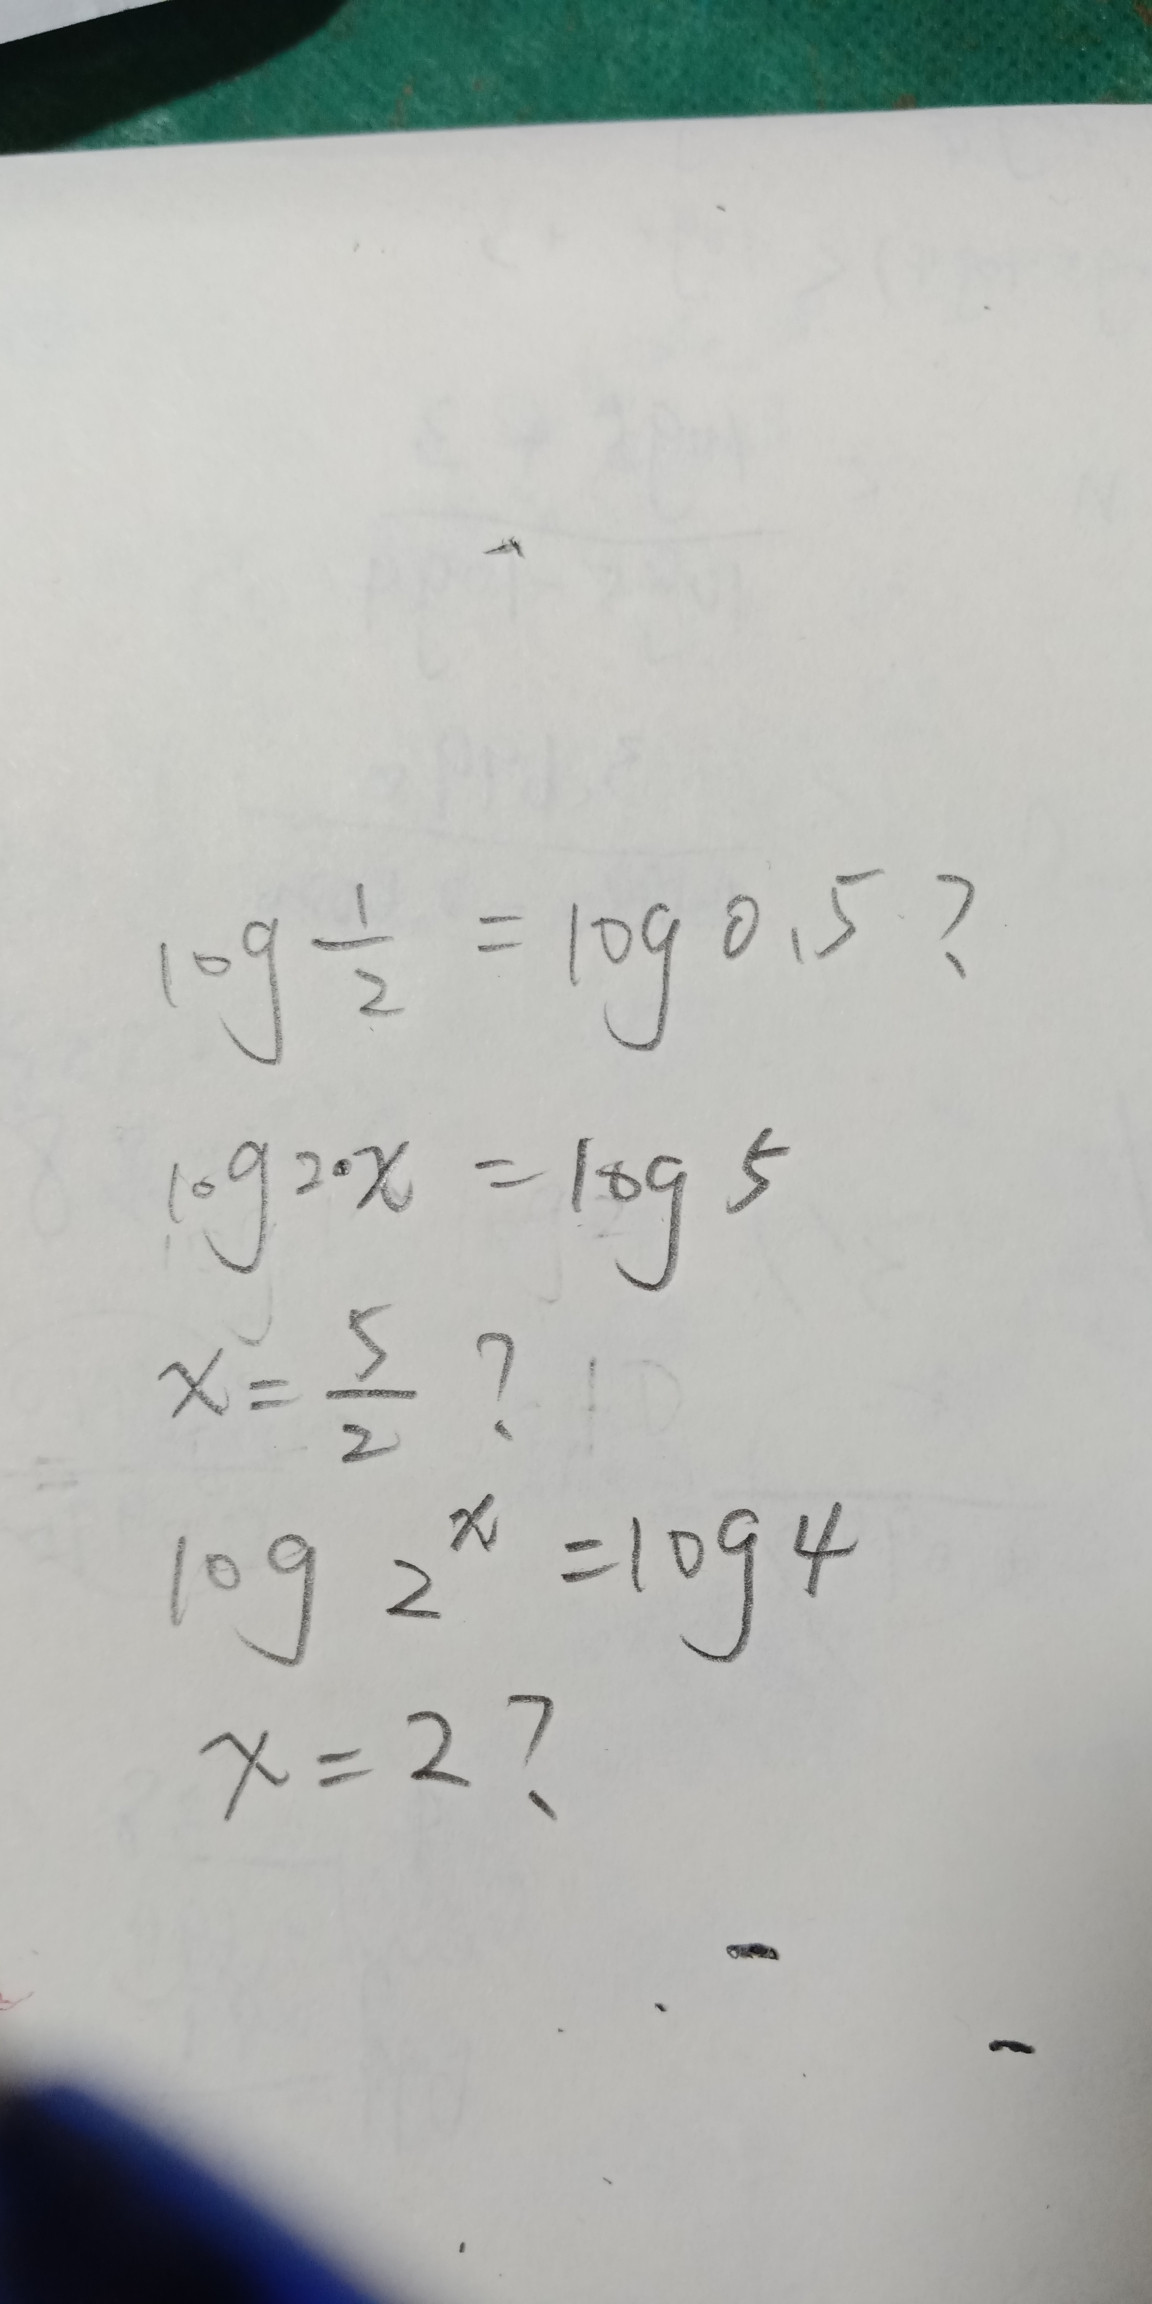 log 1/2 = log 0.5 ?
log 2·x = log 5
x = 5/2 ?
log 2^x = log 4
x = 2 ?